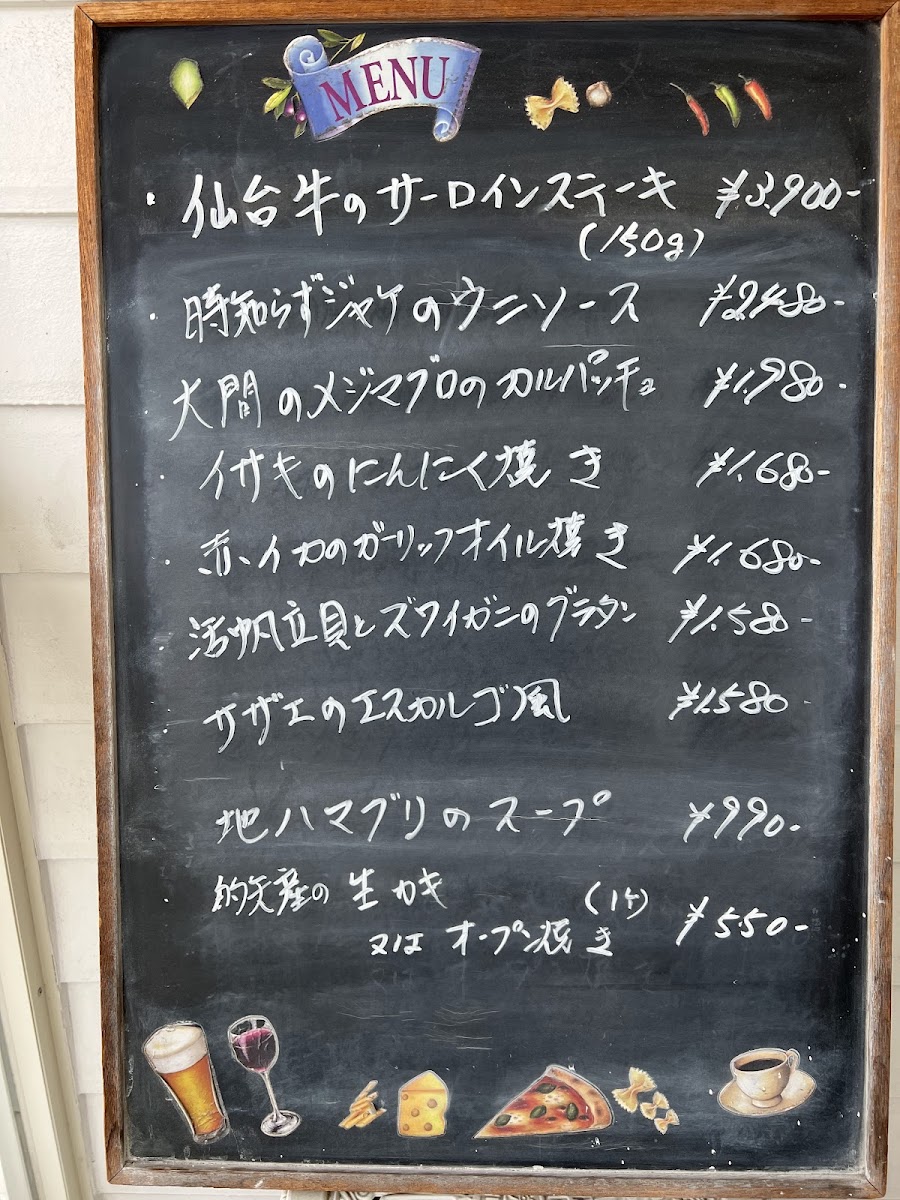 MENU
・仙台牛のサーロインステーキ ¥3.900-
(150g)
・時知らずジャケのウニソース ¥2.480-
・大間のメジマグロのカルパッチョ ¥1.980-
・イサキのにんにく焼き ¥1.680-
・赤イカのガーリックオイル焼き ¥1.680-
・活帆立貝とズワイガニのグラタン ¥1.580-
サザエのエスカルゴ風 ¥1.580-
地ハマグリのスープ ¥990-
・的矢産の生カキ (1ケ) ¥550-
又はオーブン焼き